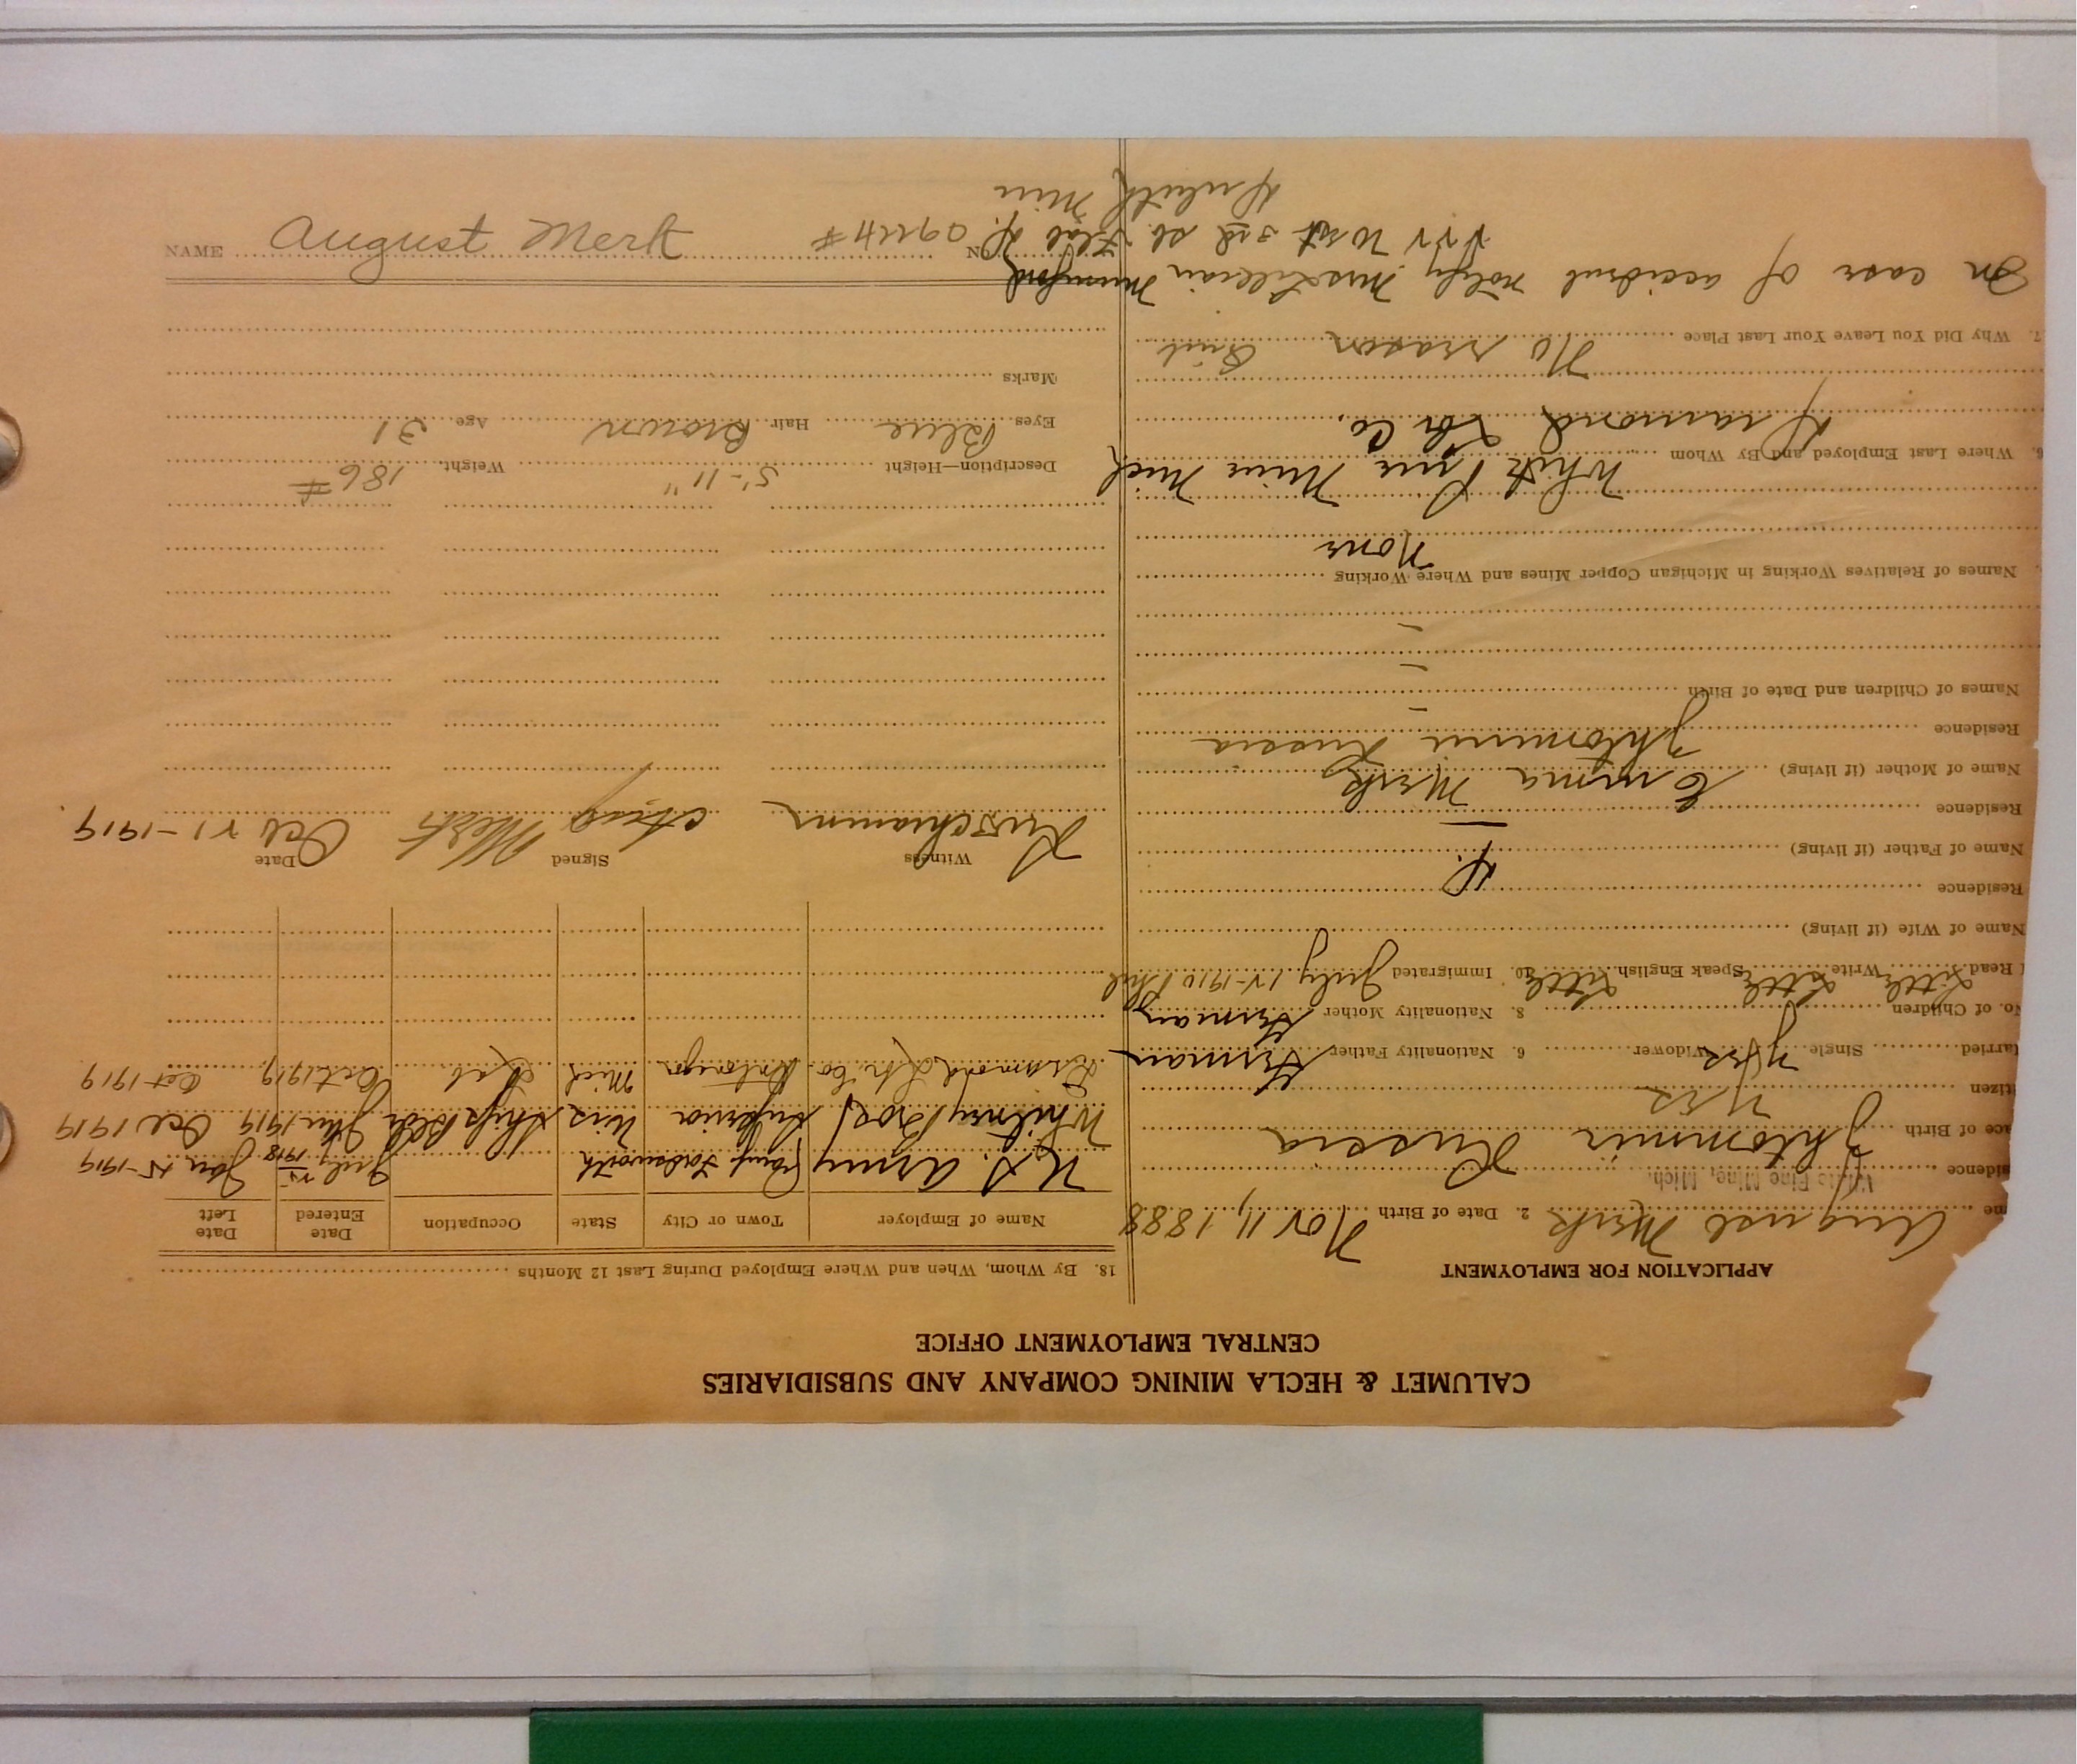 CALUMET & HECLA MINING COMPANY AND SUBSIDIARIES
CENTRAL EMPLOYMENT OFFICE
APPLICATION FOR EMPLOYMENT
me August Merk 2. Date of Birth Nov 11, 1888
sidence White Pine Mine, Mich.
ace of Birth Zhtommir Russia
itizen yes
arried Single yes Widower 6. Nationality Father German
No. of Children 8. Nationality Mother German
Read Little Write Little Speak English Little 10. Immigrated July 12-1910 Phil
Name of Wife (if living)
Residence
Name of Father (if living) D.
Residence —
Name of Mother (if living) Emma Merk
Residence Zhtommir Russia
Names of Children and Date of Birth –
–
–
Names of Relatives Working in Michigan Copper Mines and Where Working None
6. Where Last Employed and By Whom White Pine Mine Mich
Diamond Lbr Co.
7. Why Did You Leave Your Last Place No reason Quit
In case of accident notify Mrs Lillian Mumford
222 West 3rd St. Flat D.
Duluth Minn
18. By Whom, When and Where Employed During Last 12 Months
Name of Employer Town or City State Occupation Date Entered Date Left
U.S. Army Camp Wadsworth July 25 1918 Jan 25-1919
Whitney Bros Superior Wis Ship Bldr Jan 1919 Oct 1919
Diamond Lbr. Co. Ontonagon Mich Lab. Oct 1919 Oct 1919
Witness Signed Date
Aug Merk Oct 21-1919.
Description—Height 5'-11" Weight 186#
Eyes Blue Hair Brown Age 31
Marks
NAME August Merk No